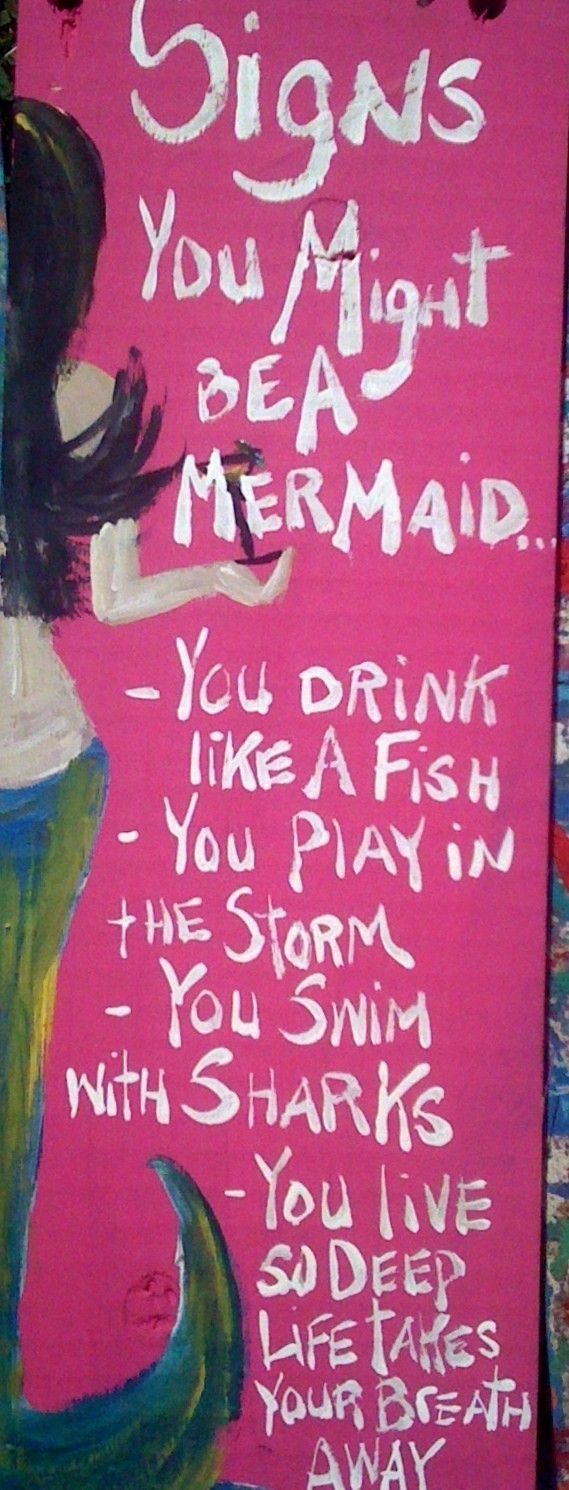 Signs
You Might
BE A
MERMAID...
- You DRiNK
liKE A FisH
- You PlAY iN
tHE StORM
- You SWiM
WitH SHARKS
- You liVE
SO DEEP
LiFE tAKES
YOUR BrEAtH
AWAY